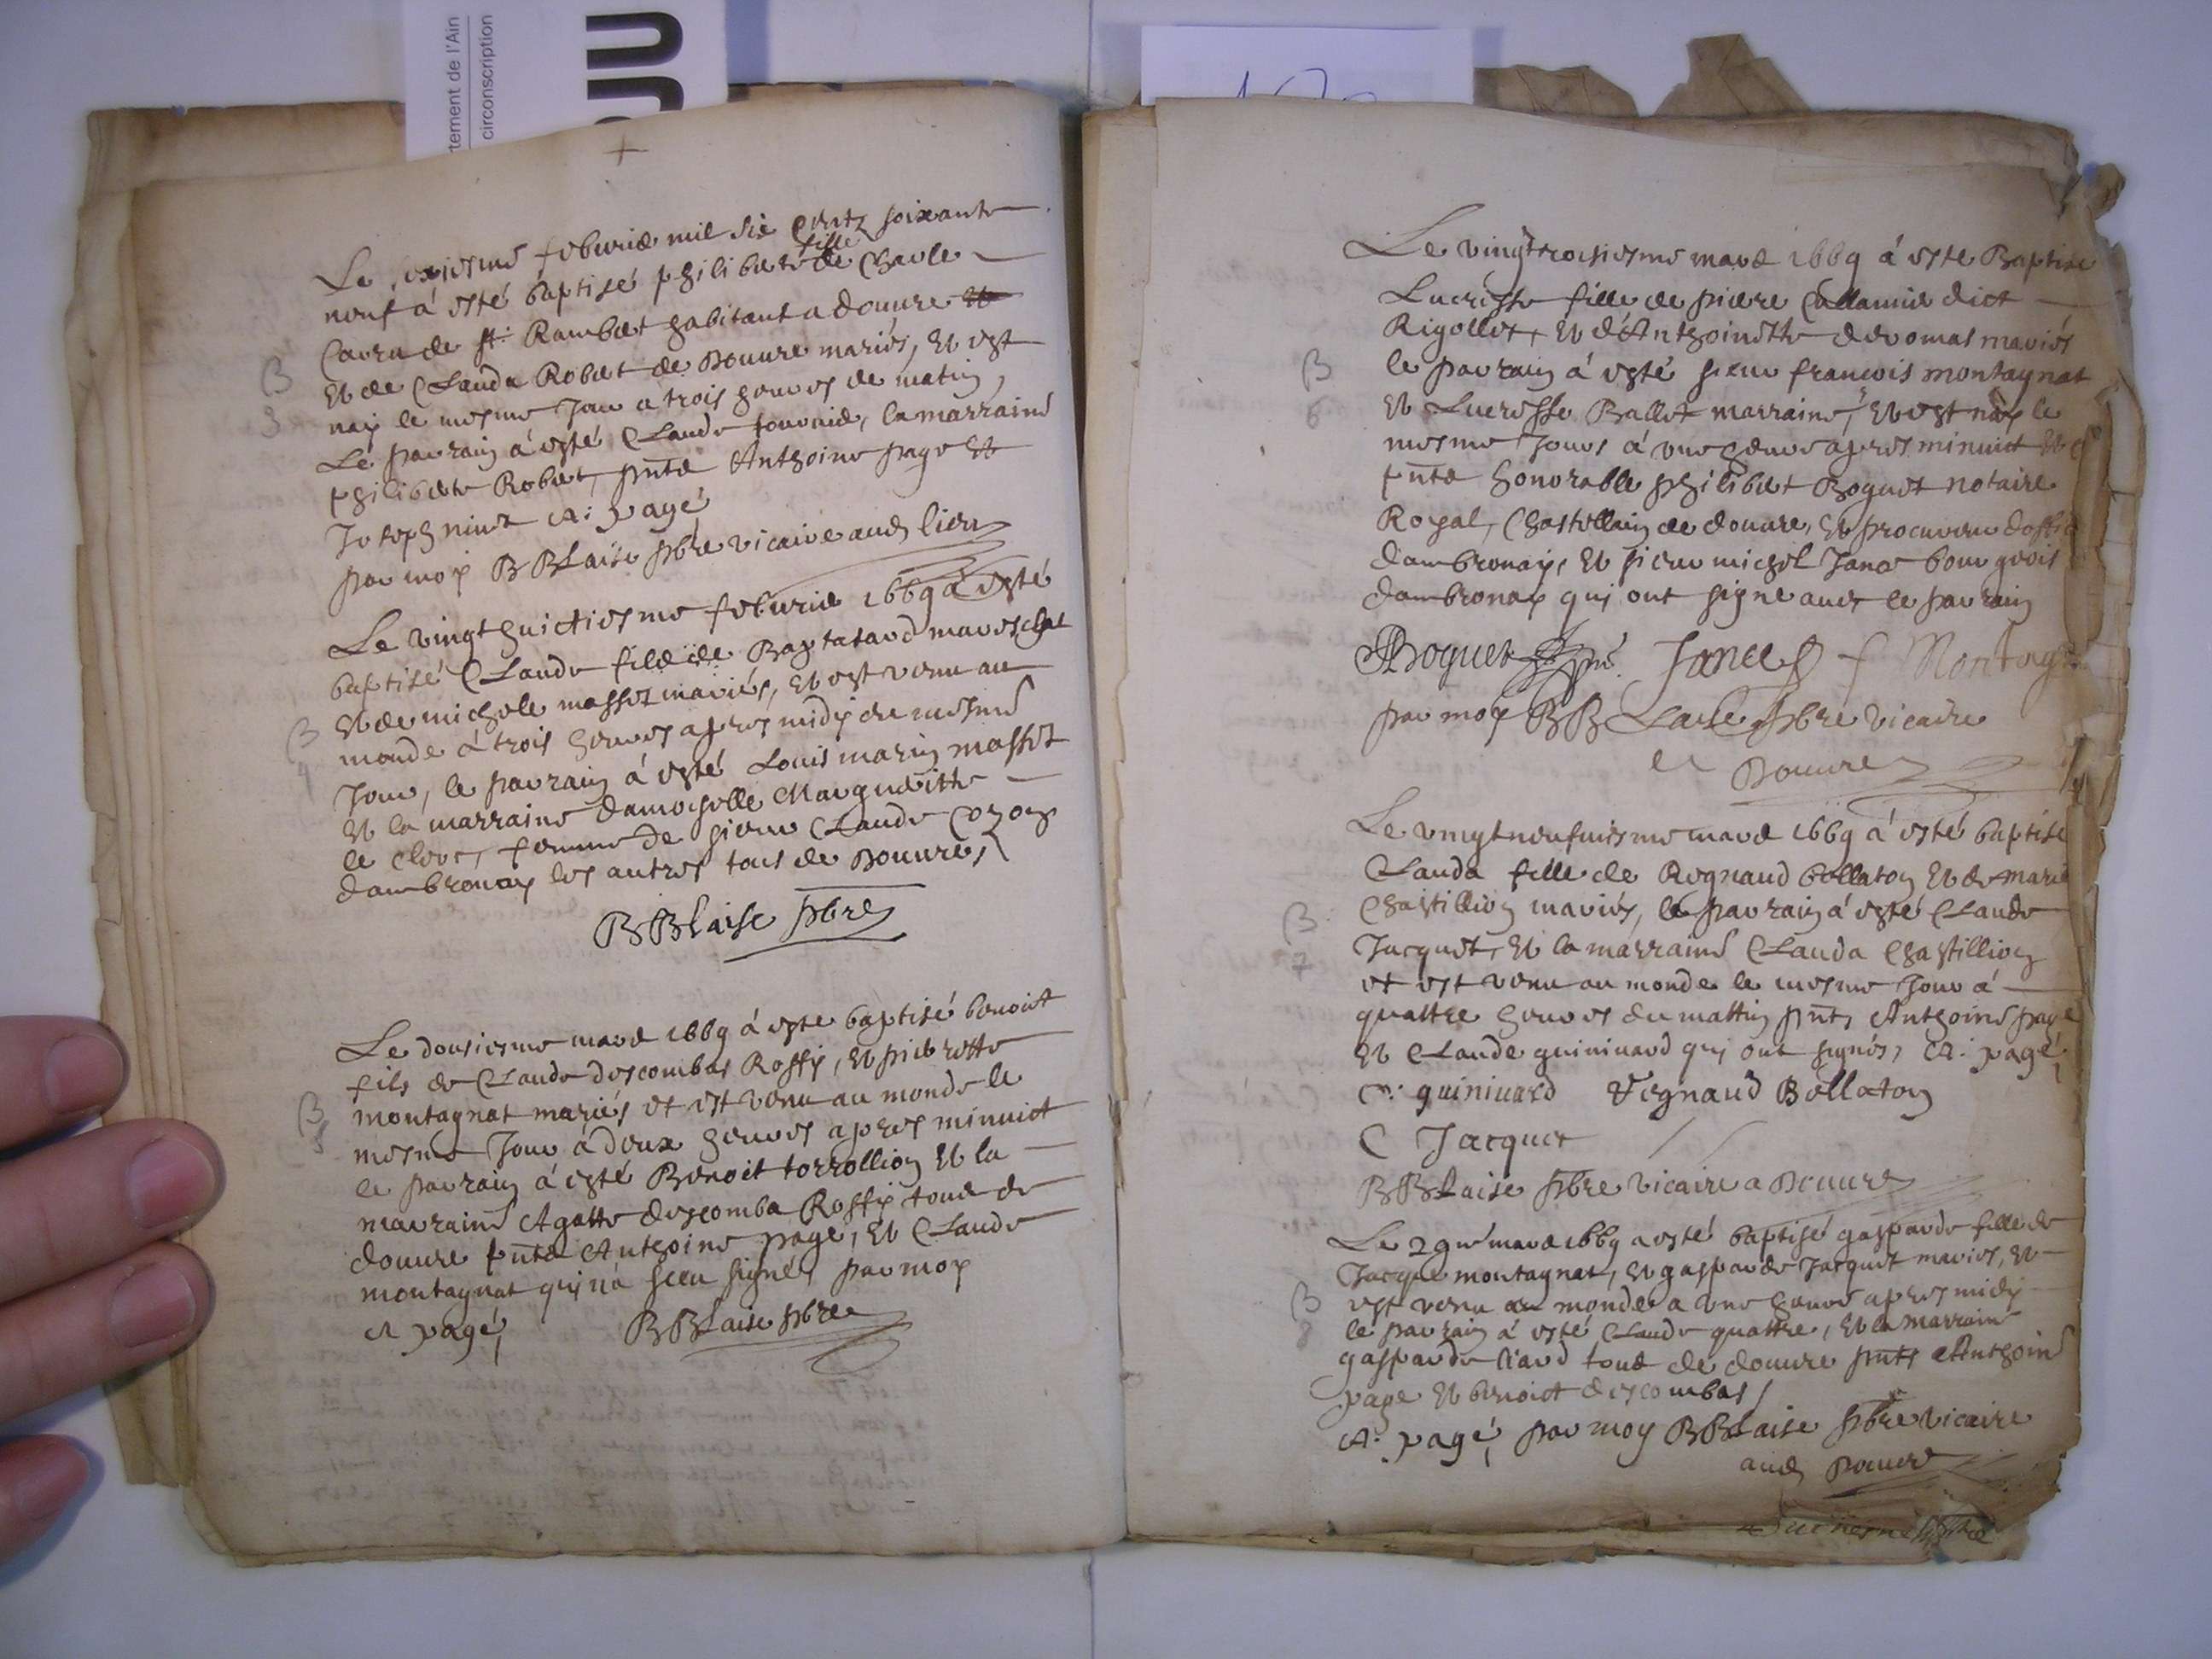 tement de l'Ain
circonscription
+
Le feburie mil six centz soixante
neuf à esté baptisé philiberte fille de Charle
de st. Rambert habitant a douure et
B Et de Clauda Robert de Douure mariés, Et est
3 nay le mesme Jour a trois heures de matin,
Le parrain à esté Claude la marraine
philiberte Robert, pnts Anthoine page Et
Joseph A: pagé
par moy B BLaise pbre vicaire aud lieu
Le vingt huictiesme feburie 1669 à esté
baptisé Claude filz de mareschal
Et de michele massot mariés, Et est venu au
B monde à trois heures apres midy du mesme
4 Jour, le parrain à esté Louis marin massot
Et la marraine damoyselle Margueritte
le clerc, femme de sieur Claude Cozon
dambronay les autres tous de Douure,
B BLaise pbre
Le dousiesme mars 1669 à esté baptisé benoict
fils de Claude descombas Roffy, Et pierrette
B montagnat mariés et est venu au monde le
5 mesme Jour à deux heures apres minuict
le parrain à esté Benoit torrollion Et la
marraine Agatte descomba Roffy tous de
douure pnts Anthoine page, Et Claude
montagnat qui n'a sceu signér par moy
A pagé, B BLaise pbre
Le vingt troisiesme mars 1669 à este Baptise
Lucresse fille de piere Callamie dict
Rigollet, Et d'Anthoinette deromas mariés
B le parrain à esté sieur francois montagnat
6 Et Lucresse Ballet marraine, Et est nay le
mesme Jours à une heure apres minuict Et
pnts honorable philibert Boguet notaire
Royal, Chastellain de douure, Et procureur doffi
dambronay, Et sieur michel Jane bourgeois
dambronay qui ont signe auec le parrain
Boguet Janes f Montagn
par moy B BLaise pbre vicaire
de Douure
Le vingt neufuiesme mars 1669 à esté baptise
Clauda fille de Regnaud bollaton Et de marie
B Chastillion mariés, le parrain à esté Claude
7 Jacquet, Et la marraine Clauda Chastillion
et est venu au monde le mesme Jour à
quattre heures du mattin pnts Anthoine page
Et Claude guinivard qui ont signés, A: pagé,
C: guinivard Regnaud Bollaton
C Jacquet
B BLaise pbre vicaire a Douure
Le 29me mars 1669 a esté baptisé gasparde fille de
Jacque montagnat, Et gasparde Jacquet mariés, Et
B est venu au monde a une heure apres midy
8 le parrain à esté Claude quattre, Et la marraine
gasparde liard tous de douure pnts Anthoine
page Et benoict descombas
A: pagé, par moy B BLaise pbre vicaire
aud Douure